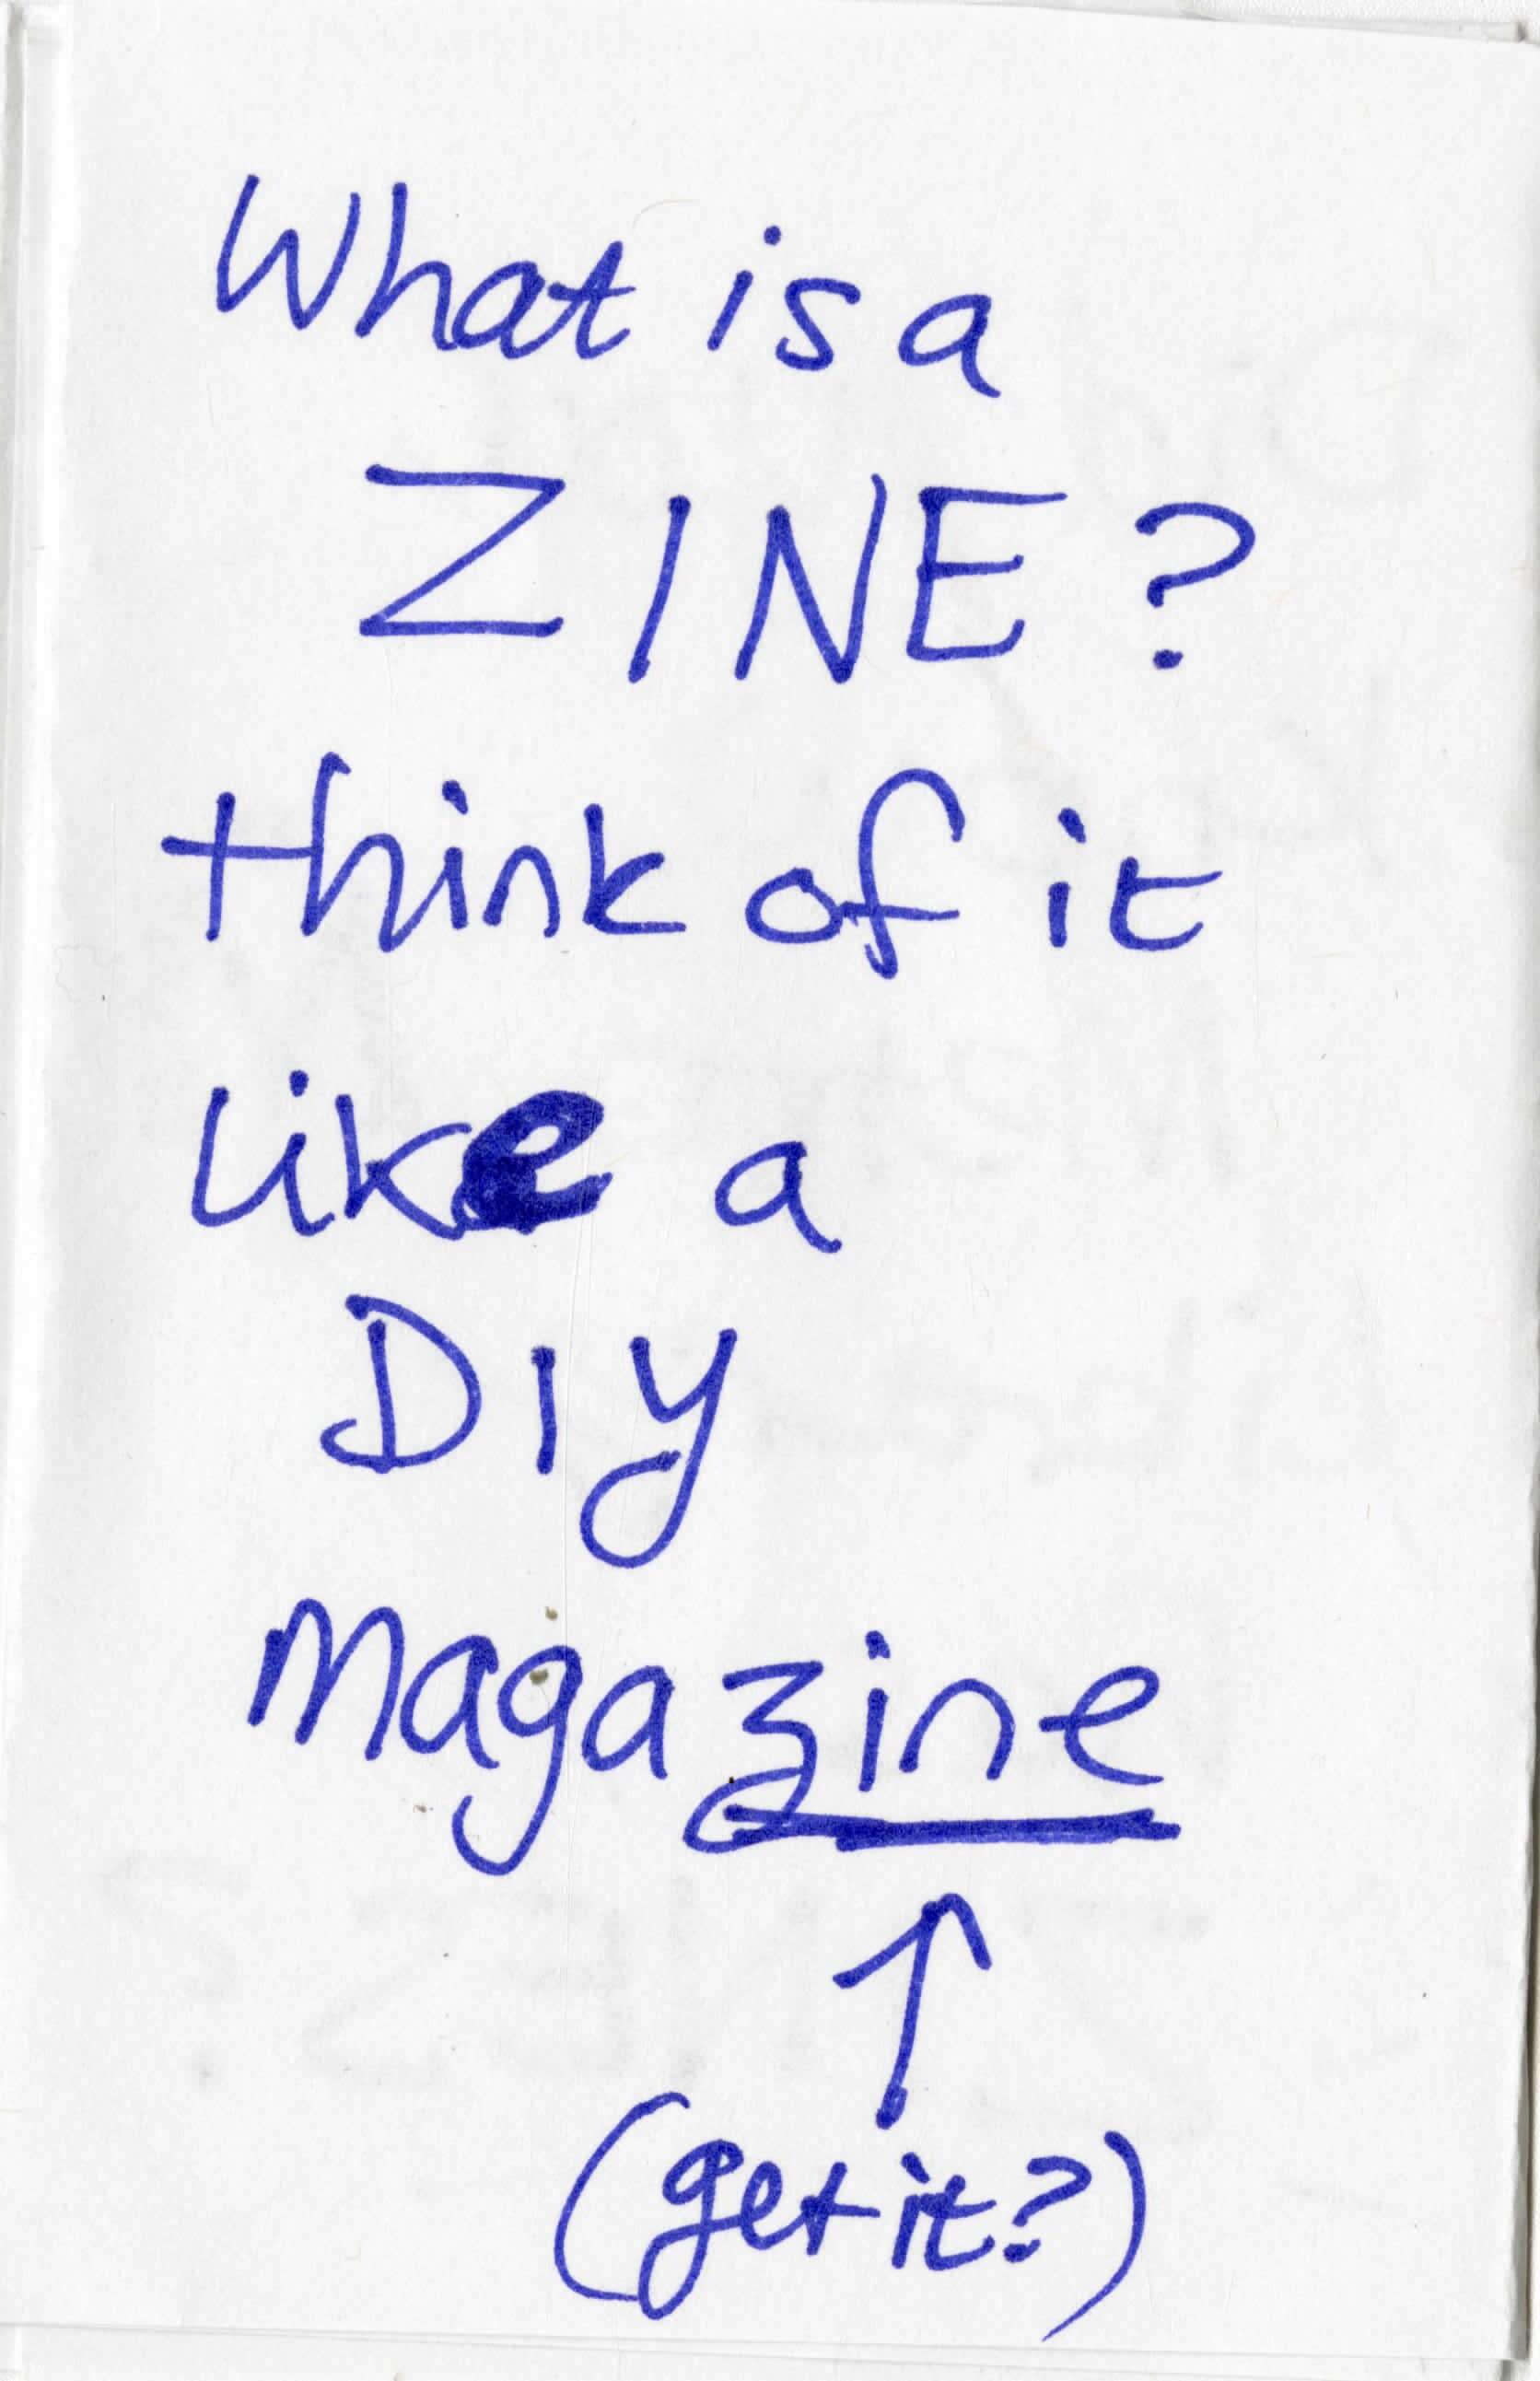 What is a
ZINE?
think of it
like a
DIY
magazine
↑
(get it?)